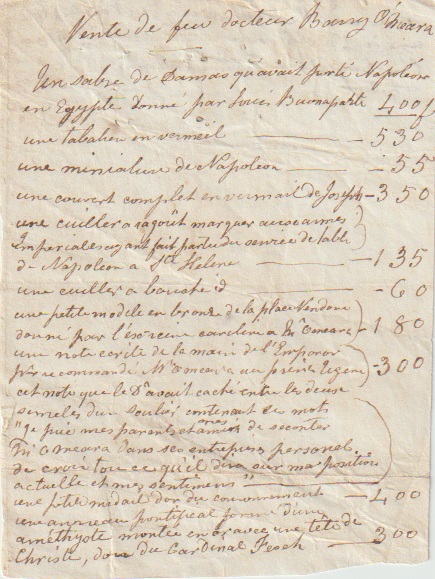 Vente de feu docteur Barry O'Meara
Un sabre de Damas qu'avait porté Napoléon
en Egypte donné par Louis Buonaparte 400 f
une tabatière en vermeil — 530
une miniature de Napoléon — 55
une couvert complet en vermail de Joseph — 350
une cuiller a ragoût marquer aux armes
Imperiales ayant fait partie du service de table
de Napoleon a Ste Helene — 135
une cuiller a bouche id — 60
une petite modele en bronze de la place Vendome
donné par l'ex reine caroline a Mr Omeara — 180
une note ecrite de la main de l'Emperor
pr recommandé Mr Omeara au prince Eugene — 300
cet note que le Dr avait caché entre les deux
semeles d'un soulier contenait ces mots
"Je prie mes parents et amis de seconter
Mr Omeara dans ses entreprises personels
de croire tou ce qu'il dira sur ma position
actuelle et mes sentimens"
une petite medail d'or du couronnement — 400
une anneau pontifical formé d'une
améthyste montée en or avec une tête de
Christe, don du Cardinal Fesch — 300